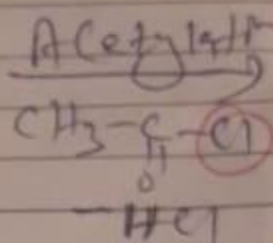 Acetylation
CH3-C-Cl
||
O
-HCl